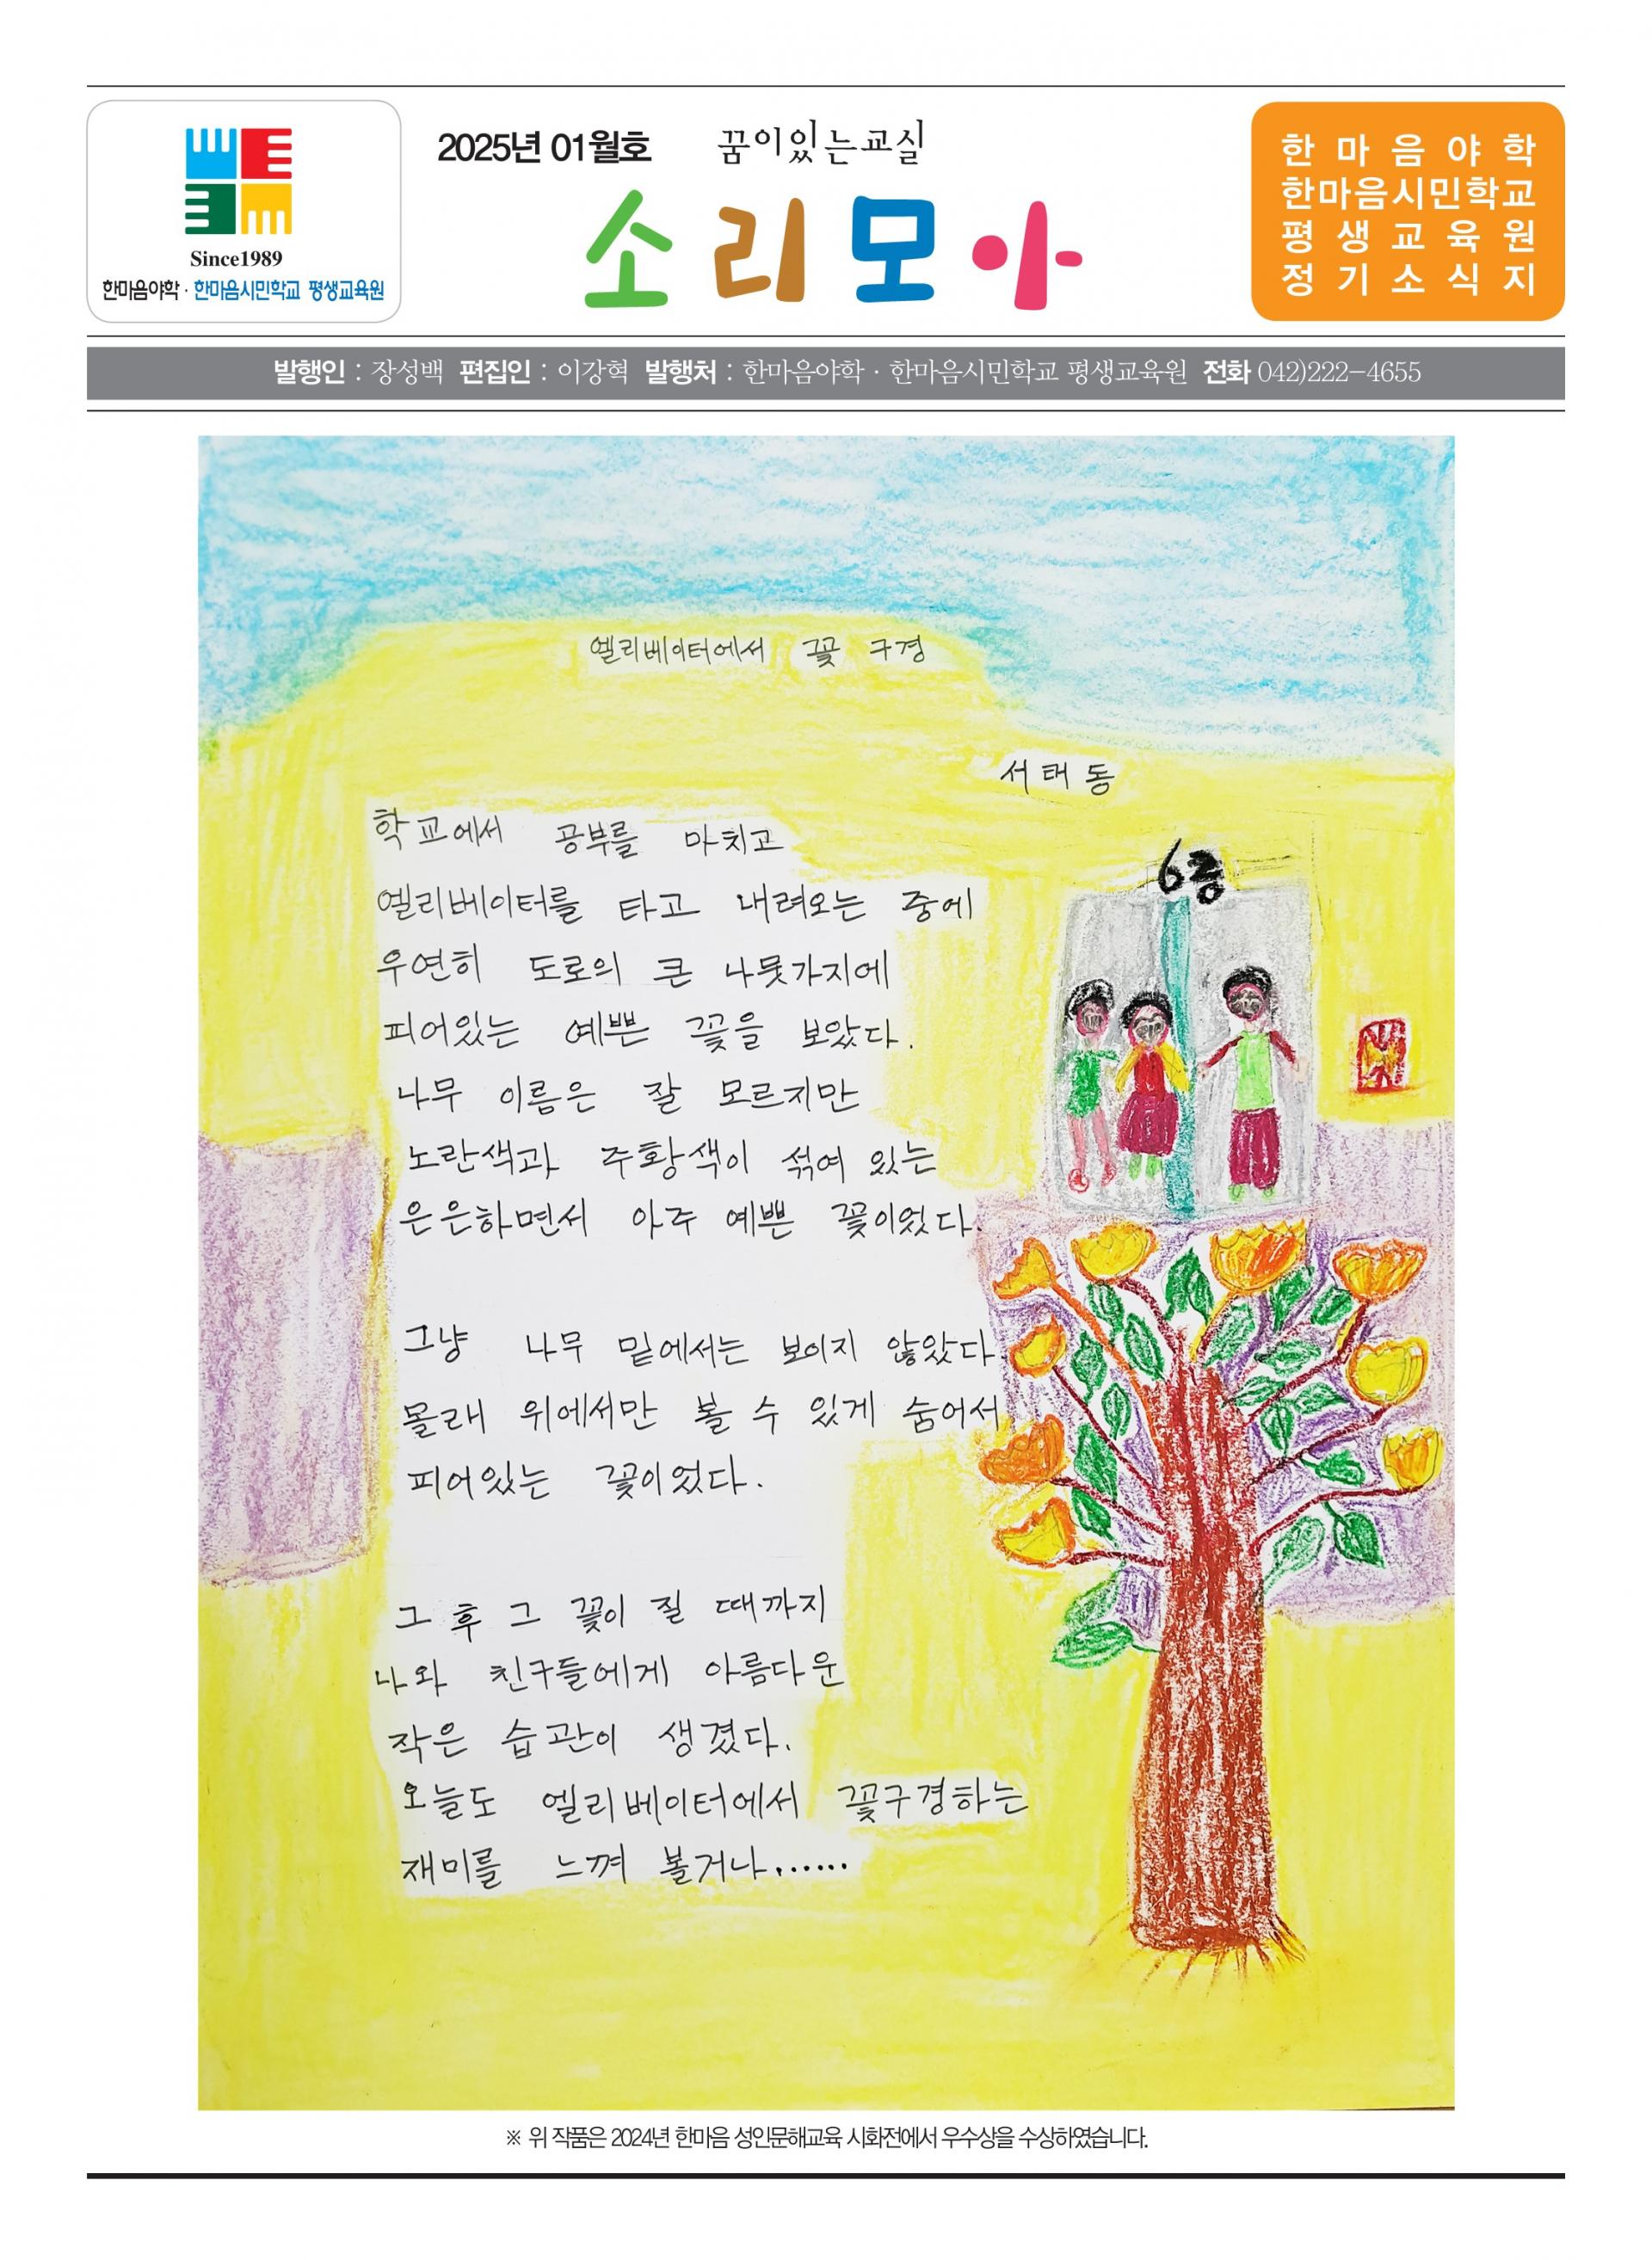 Since1989
한마음야학 · 한마음시민학교 평생교육원
2025년 01월호 꿈이있는교실
소리모아
한마음야학
한마음시민학교
평생교육원
정기소식지
발행인 : 장성백 편집인 : 이강혁 발행처 : 한마음야학 · 한마음시민학교 평생교육원 전화 042)222-4655
엘리베이터에서 꽃 구경
서태동
학교에서 공부를 마치고
엘리베이터를 타고 내려오는 중에
우연히 도로의 큰 나뭇가지에
피어있는 예쁜 꽃을 보았다.
나무 이름은 잘 모르지만
노란색과 주황색이 섞여 있는
은은하면서 아주 예쁜 꽃이었다.
그냥 나무 밑에서는 보이지 않았다.
몰래 위에서만 볼 수 있게 숨어서
피어있는 꽃이었다.
그 후 그 꽃이 질 때까지
나와 친구들에게 아름다운
작은 습관이 생겼다.
오늘도 엘리베이터에서 꽃구경하는
재미를 느껴 볼거나......
6층
※ 위 작품은 2024년 한마음 성인문해교육 시화전에서 우수상을 수상하였습니다.